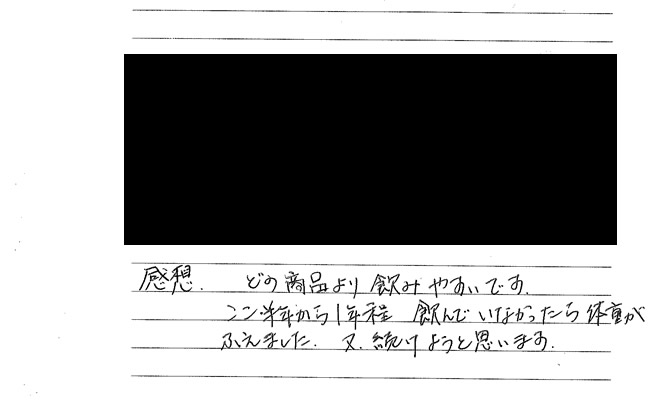 感想. どの商品より飲みやすいです.
ここ半年から1年程 飲んでいなかったら体重が
ふえました. 又.続けようと思います.